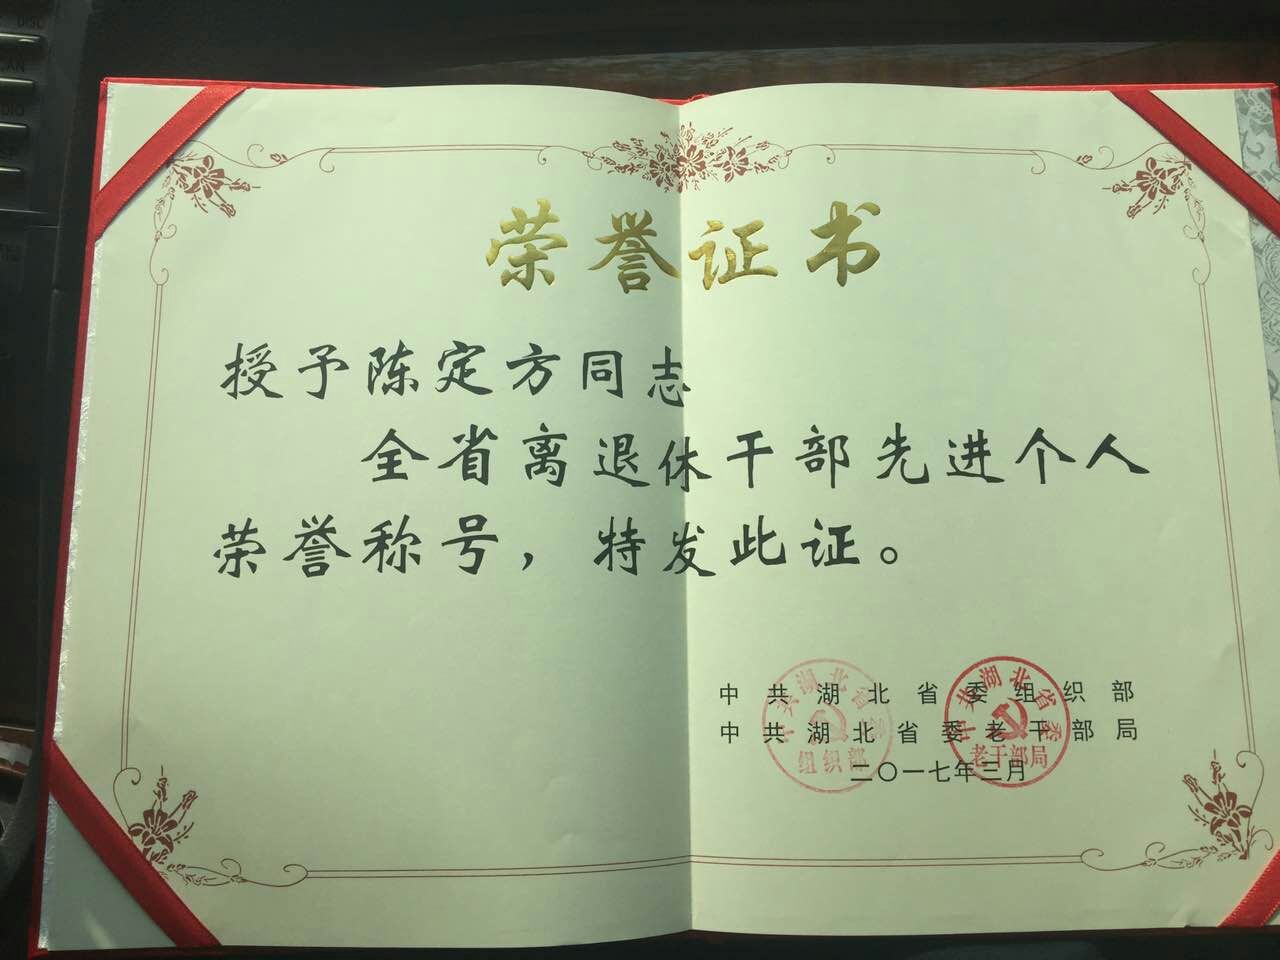 荣誉证书
授予陈定方同志
全省离退休干部先进个人
荣誉称号，特发此证。
中共湖北省委组织部
中共湖北省委老干部局
二〇一七年三月
中共湖北省委
组织部
中共湖北省委
老干部局
DISC